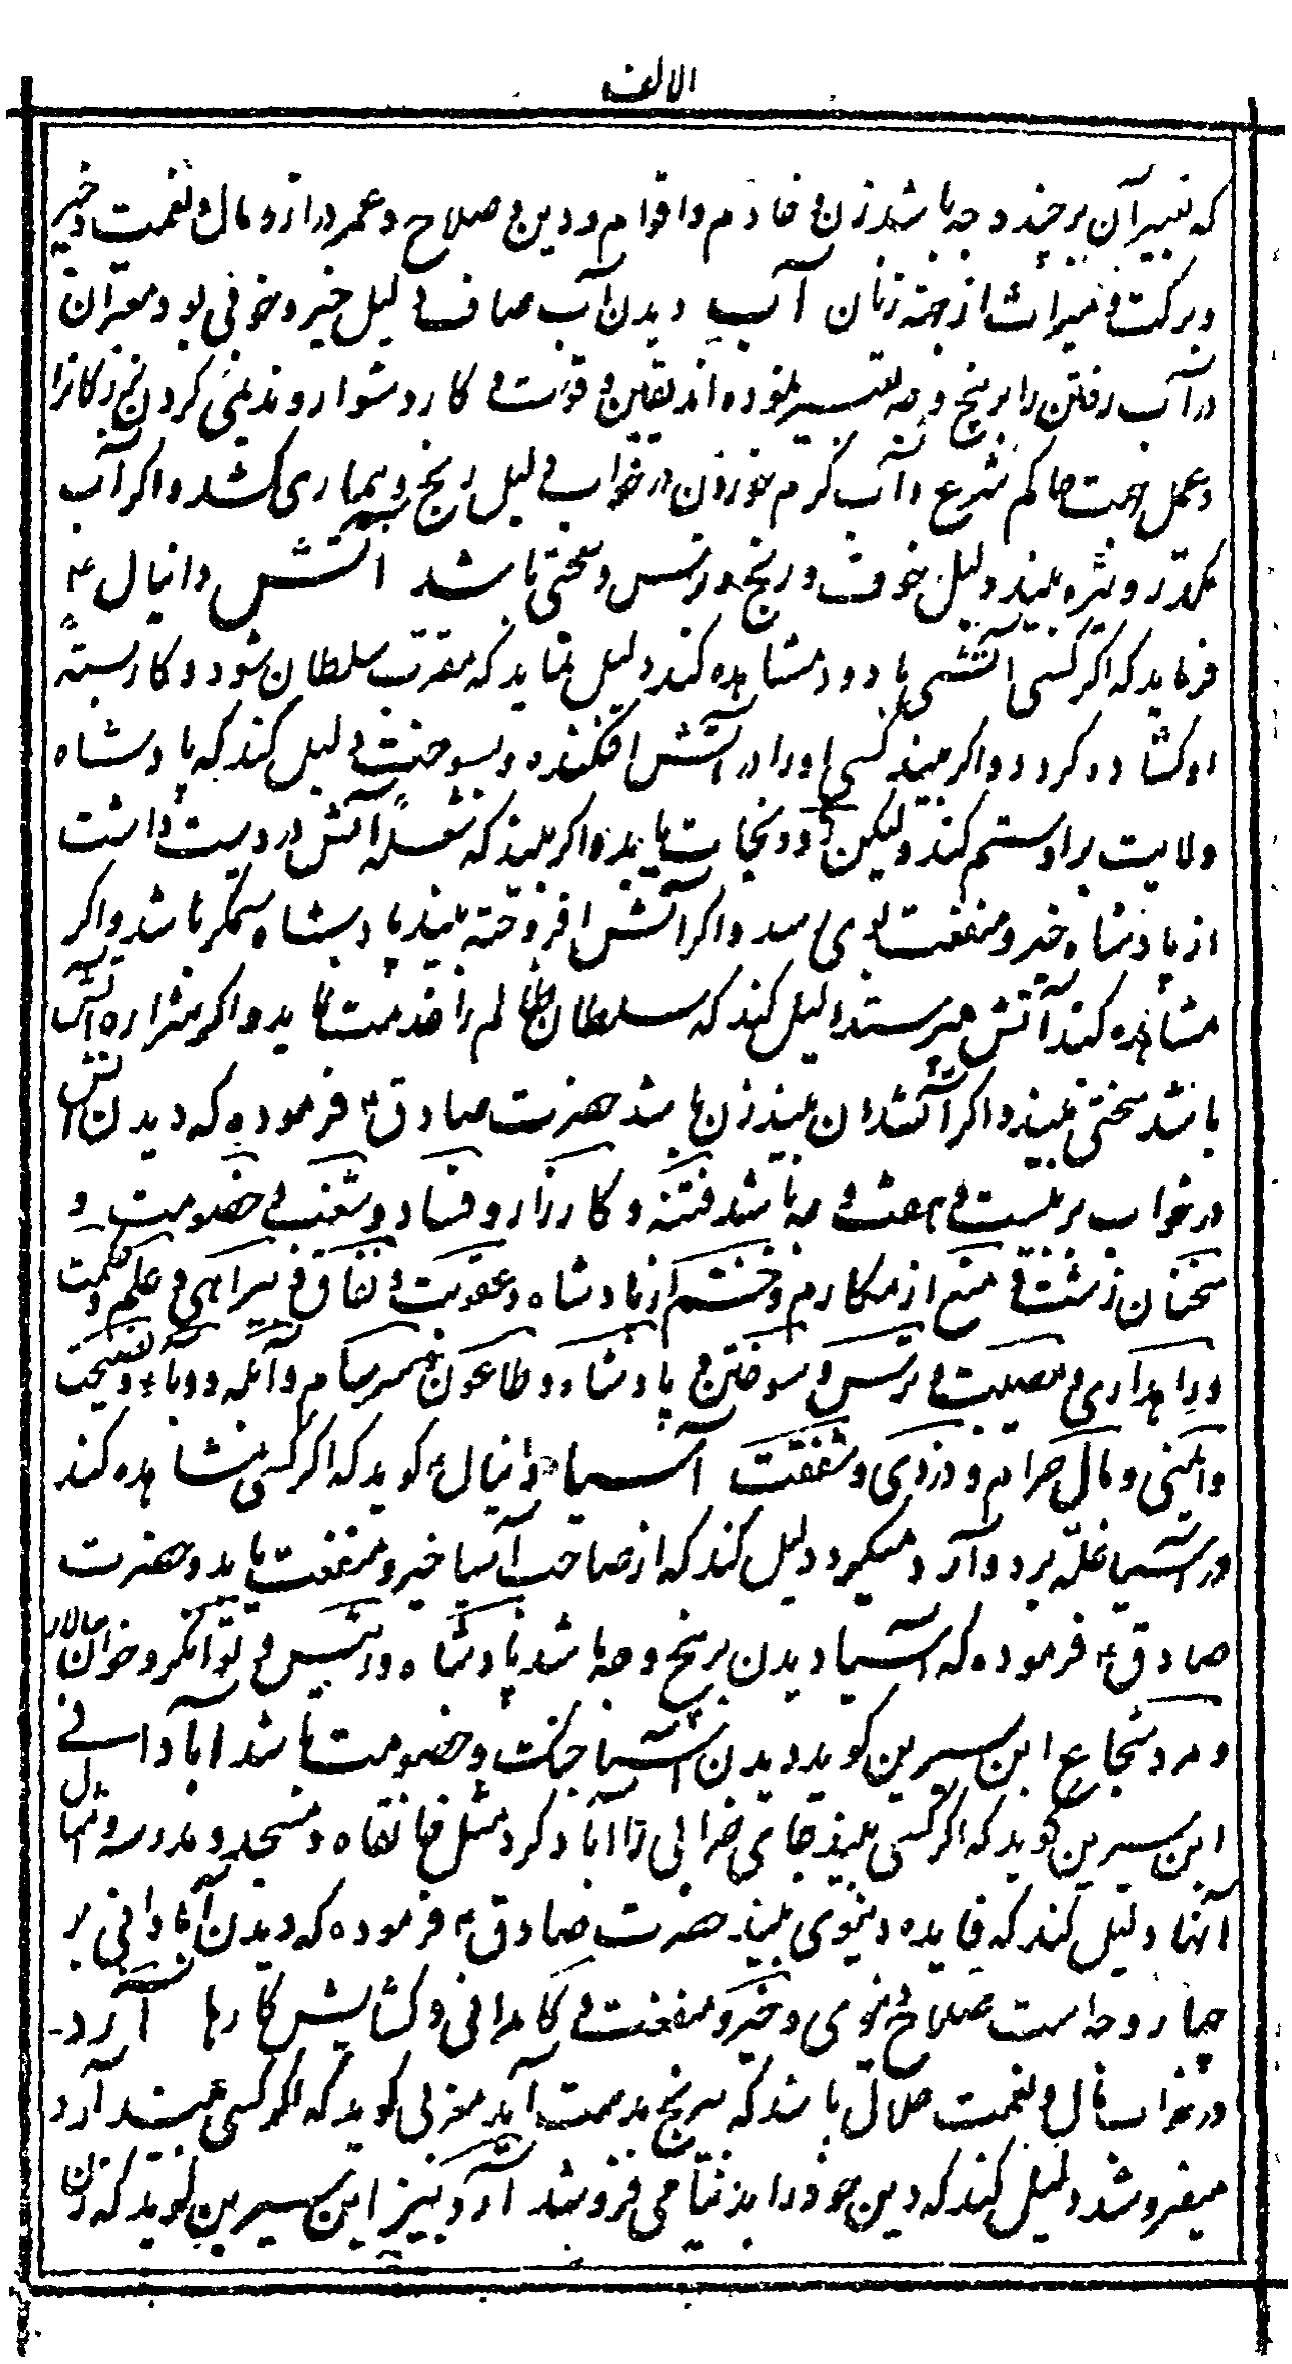 الالف
که تعبیر آن بر چند وجه باشد زن و خادم و اقوام و دین و صلاح و عمر دراز و مال و نعمت و خیر
و برکت و میراث از جهة زنان آب دیدن آب صاف دلیل خیر و خوفی بود معبران
در آب رفتن را بر پنج وجه تفسیر نموده اند یقین و قوت و کار دشوار و
و عمل جهت حاکم شرع و آب گرم خوردن در خواب دلیل رنج و بیماری کشد و اگر آب
مکدر و تیره بیند دلیل خوف و رنج و ترس و سختی باشد آتش دانیال ع
فرماید که اگر کسی آتشی با دود مشاهده کند دلیل نماید که مقرب سلطان شود و کار بسته
او گشاده گردد و اگر بیند کسی او را در آتش افکنده و بسوخت دلیل کند که پادشاه
ولایت بر او ستم کند و لیکن زود نجات یابد و اگر بیند که شعلۀ آتش در دست داشت
از پادشاه خیر و منفعت بوی رسد و اگر آتش افروخته بیند پادشاه ستمگر باشد و اگر
مشاهده کند آتش میپرستد دلیل کند که سلطان ظالم را خدمت نماید و اگر شراره آتش
باشد سختی بیند و اگر آتشدان بیند زن باشد حضرت صادق ع فرموده که دیدن آتش
در خواب بر بیست و هشت وجه باشد فتنه و کارزار و فساد و شغب و خصومت و
سخنان زشت و منع از مکارم و خشم از پادشاه و عقوبت و نفاق و بیراهی و علم و حکمت
و راهداری و مصیبت و ترس و سوختن و پادشاه و طاعون و سرسام و آبله و وبا و فضیحت
و ایمنی و مال حرام و دزدی و شفقت آسیا دانیال ع گوید که اگر کسی مشاهده کند
در آسیا غله برد و آرد میگیرد دلیل کند که از صاحب آسیا خیر و منفعت یابد و حضرت
صادق ع فرموده که آسیا دیدن بر پنج وجه باشد پادشاه و رئیس و توانگر و خوان سالار
و مرد شجاع ابن سیرین گوید دیدن آسیا جنگ و خصومت باشد آبادانی
ابن سیرین گوید که اگر کسی بیند جای خرابی را آباد کرد مثل خانقاه و مسجد و مدرسه و امثال
آنها دلیل کند که فایده دنیوی بیند حضرت صادق ع فرموده که دیدن آبادانی بر
چهار وجه است صلاح دنیوی و خیر و منفعت و کامرانی و گشایش کارها آرد
در خواب مال و نعمت حلال باشد که بیرنج بدست آید مغربی گوید که اگر کسی بیند آرد
میفروشد دلیل کند که دین خود را بدنیا می فروشد آرد بیز ابن سیرین گوید که زن